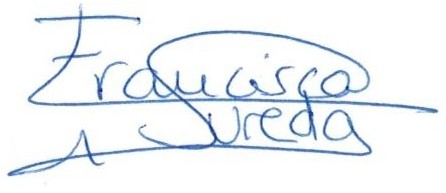 Francisca
Jureda